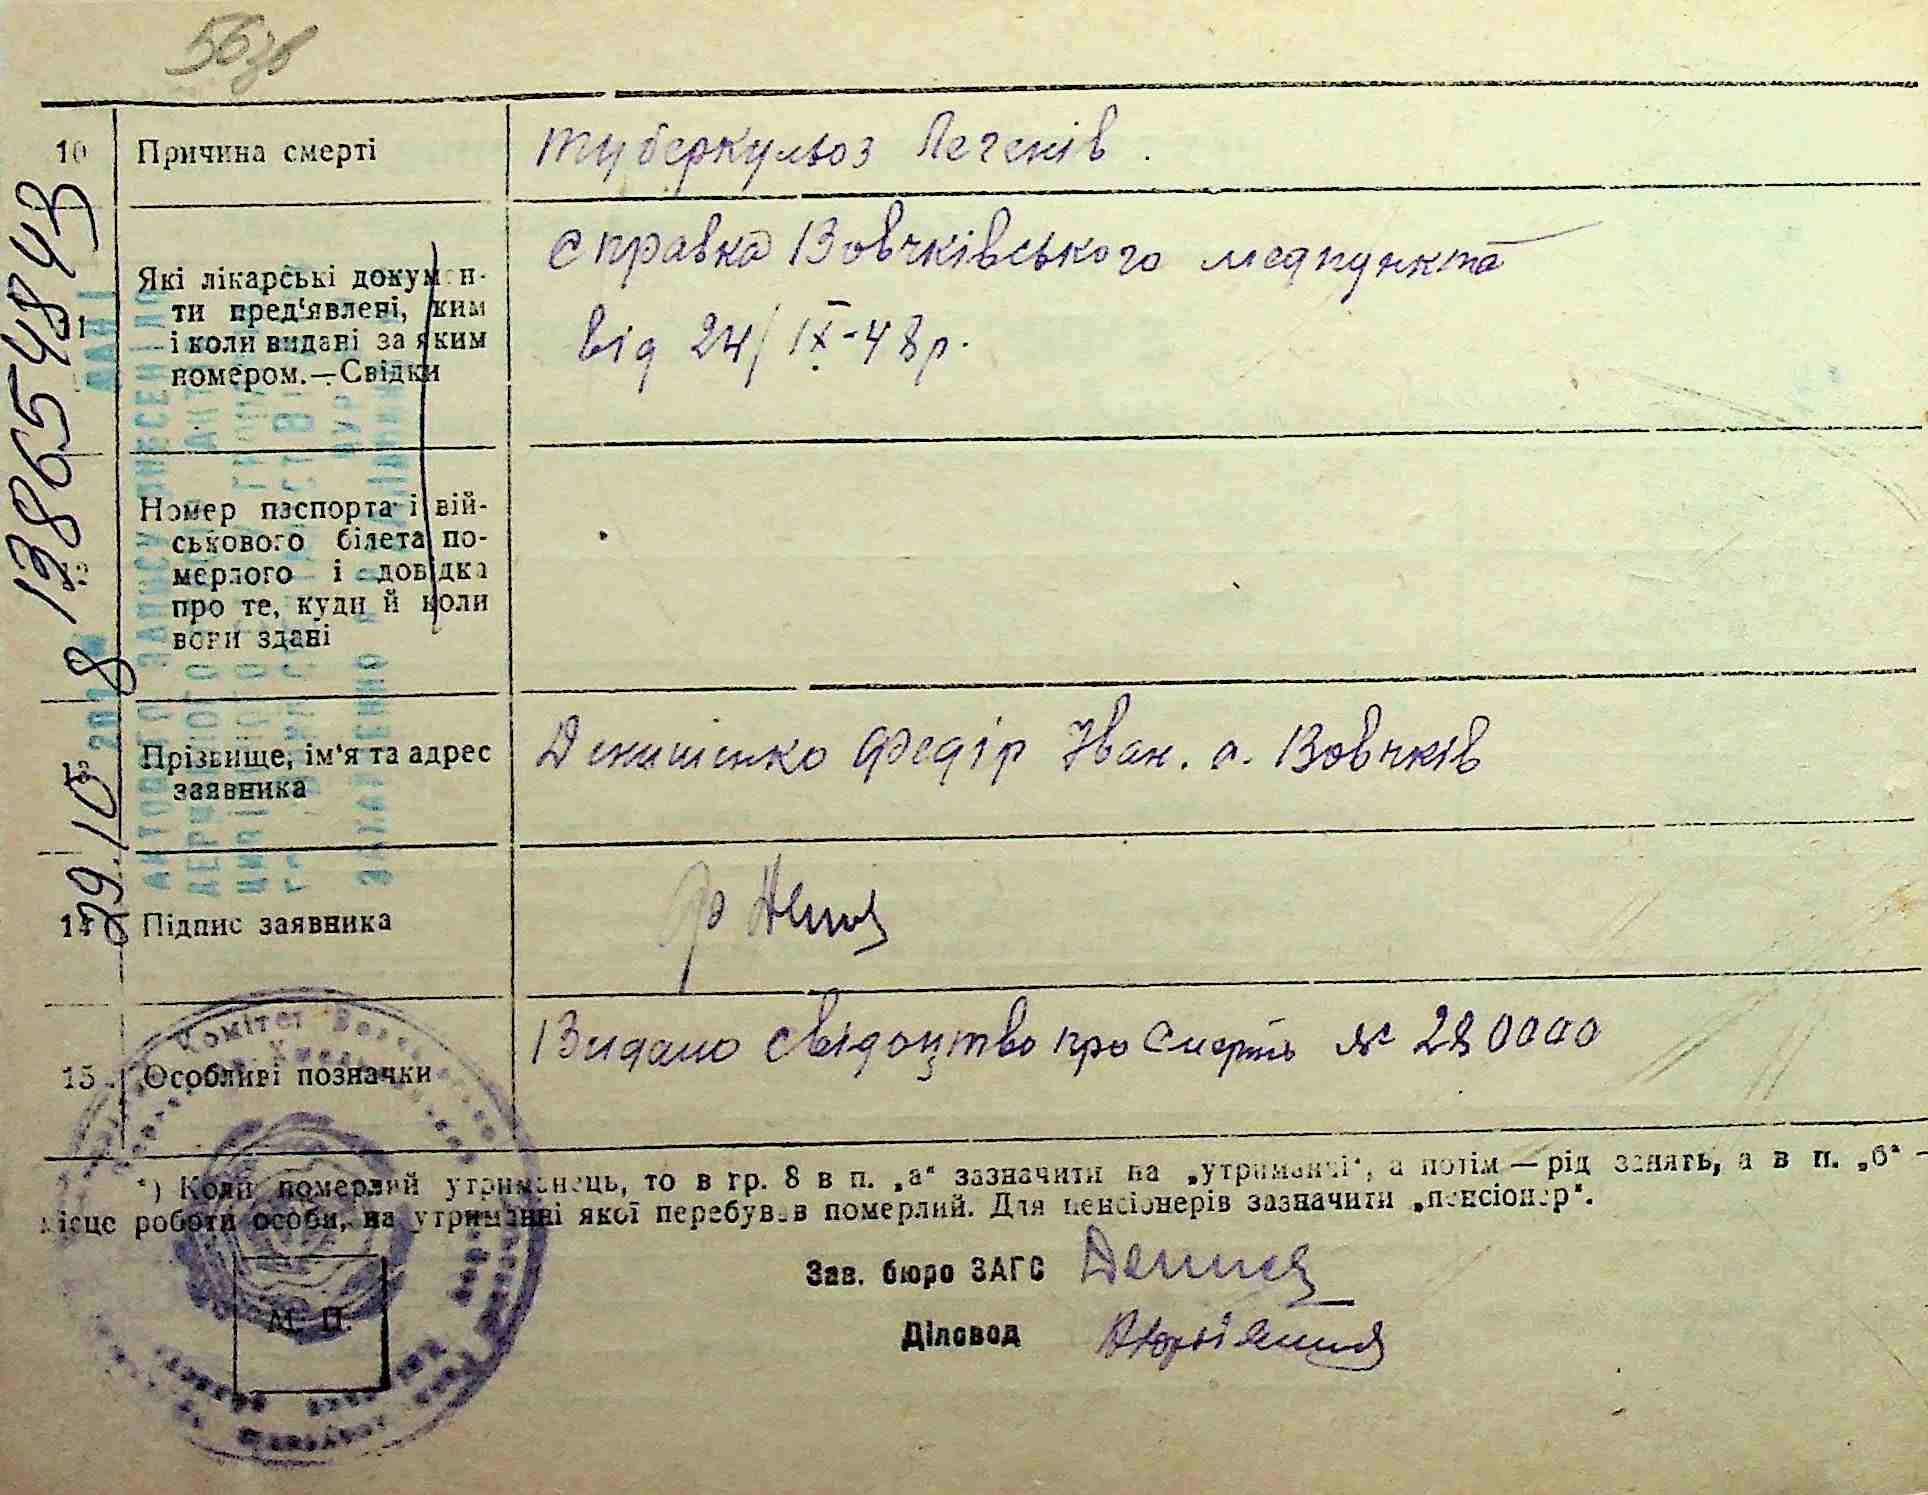 56зв
10 Причина смерті
туберкульоз Легенів.
11 Які лікарські докумен-
ти пред'явлені, ким
і коли видані за яким
номером.—Свідки
справка Вовчківського медпункта
від 24/IX-48р.
Номер паспорта і вій-
ськового білета по-
мерлого і довідка
про те, куди й коли
вони здані
Прізвище, ім'я та адрес
заявника
Денисенко Федір Іван. с. Вовчків
14 Підпис заявника
15 Особливі позначки
Видано свідоцтво про смерть № 280000
*) Коли померлий утриманець, то в гр. 8 в п. „а“ зазначити на „утриманні“, а потім — рід занять, а в п. „б“ —
місце роботи особи, на утриманні якої перебував померлий. Для пенсіонерів зазначити „пенсіонер“.
Зав. бюро ЗАГС
Діловод
М. П.
29.10 2018 138654843
АКТОВОГО ЗАПИСУ ВНЕСЕНІ ДО
Комітет